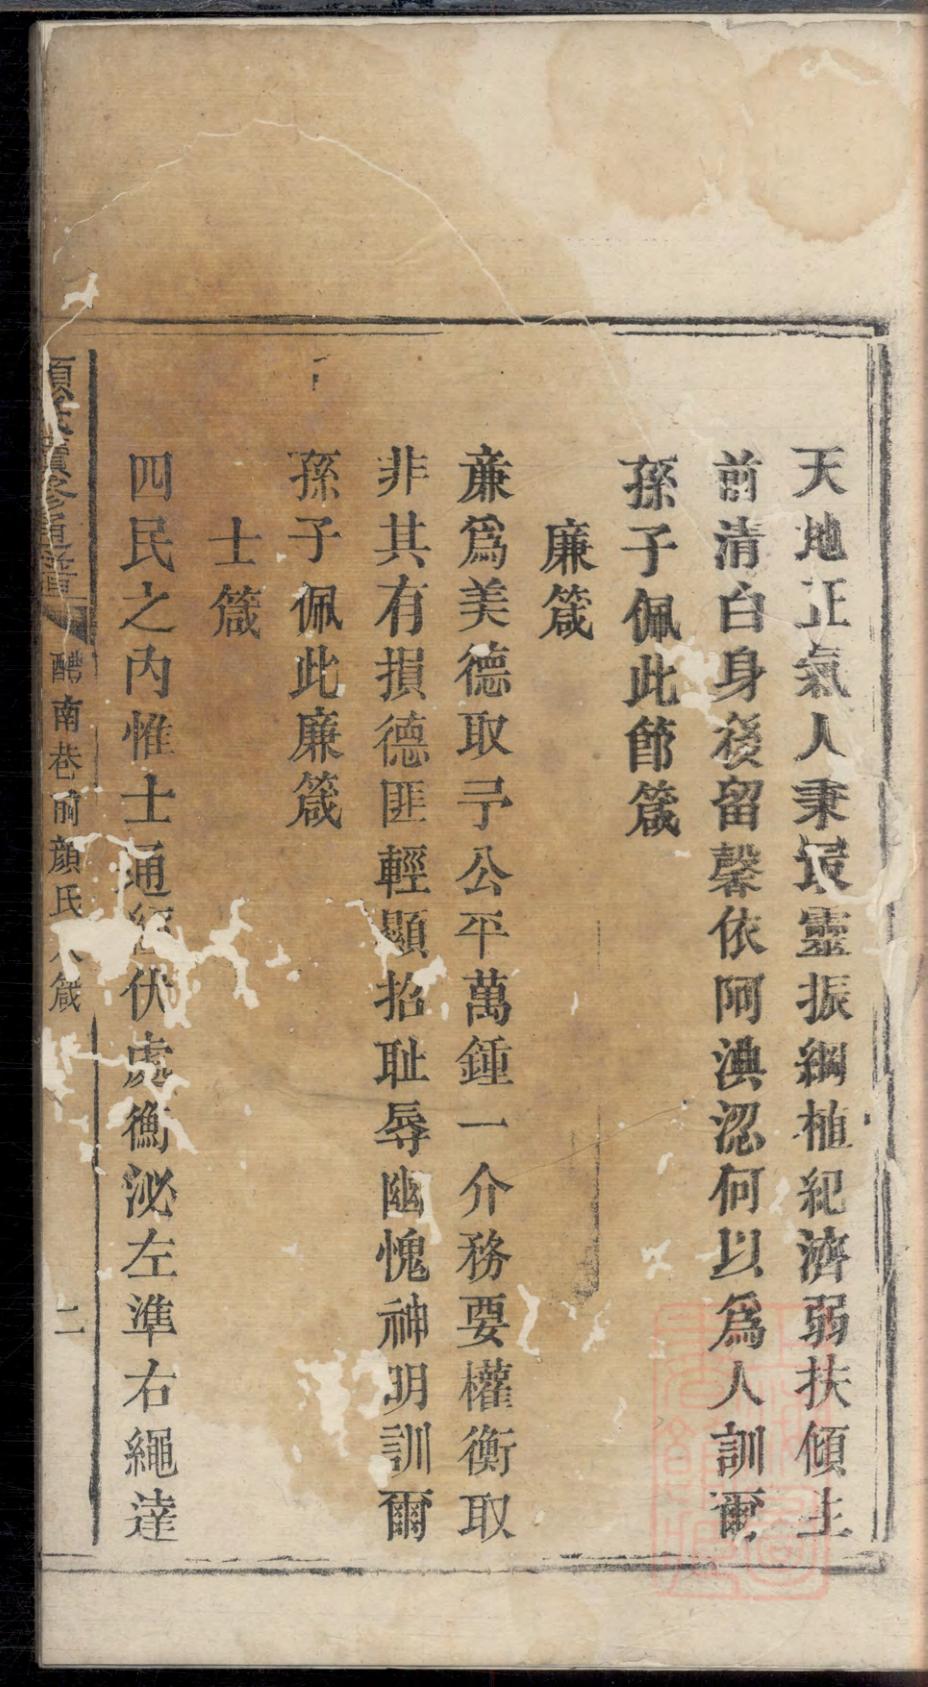 天地正氣人秉最靈振綱植紀濟弱扶傾生
前清白身後留馨依阿淟涊何以為人訓爾
孫子佩此節箴
廉箴
廉為美德取予公平萬鍾一介務要權衡取
非其有損德匪輕顯招耻辱幽愧神明訓爾
孫子佩此廉箴
士箴
四民之內惟士通經伏處衡泌左準右繩達
顏氏續修通譜
醴南巷前顏氏八箴
二